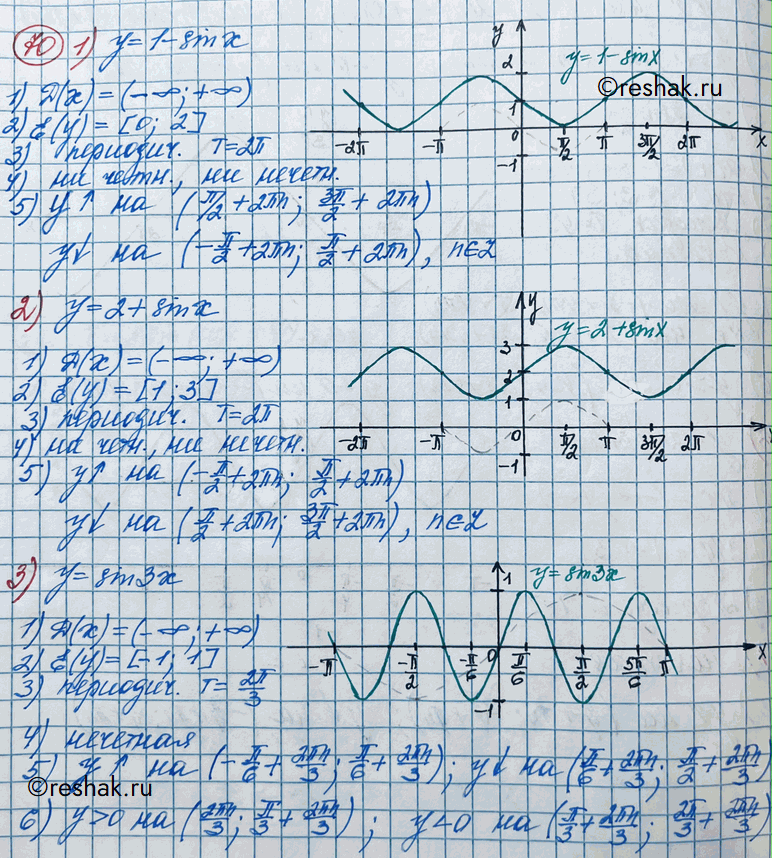 70 1) y = 1 - sin x
1) D(x) = (-∞; +∞)
2) E(y) = [0; 2]
3) периодич. T = 2π
4) ни четн., ни нечетн.
5) y↑ на (π/2 + 2πn; 3π/2 + 2πn)
y↓ на (-π/2 + 2πn; π/2 + 2πn), n∈Z
y
y = 1 - sin x
©reshak.ru
2
1
-2π -π 0 π/2 π 3π/2 2π x
-1
2) y = 2 + sin x
1) D(x) = (-∞; +∞)
2) E(y) = [1; 3]
3) периодич. T = 2π
4) на четн., ни нечетн.
5) y↑ на (-π/2 + 2πn; π/2 + 2πn)
y↓ на (π/2 + 2πn; 3π/2 + 2πn), n∈Z
y
y = 2 + sin x
3
2
1
-2π -π 0 π/2 π 3π/2 2π
-1
3) y = sin 3x
1) D(x) = (-∞; +∞)
2) E(y) = [-1; 1]
3) периодич. T = 2π/3
4) нечетная
5) y↑ на (-π/6 + 2πn/3; π/6 + 2πn/3); y↓ на (π/6 + 2πn/3; π/2 + 2πn/3)
6) y > 0 на (2πn/3; π/3 + 2πn/3); y < 0 на (π/3 + 2πn/3; 2π/3 + 2πn/3)
1
y = sin 3x
-π -π/2 -π/6 0 π/6 π/2 5π/6 π x
-1
©reshak.ru